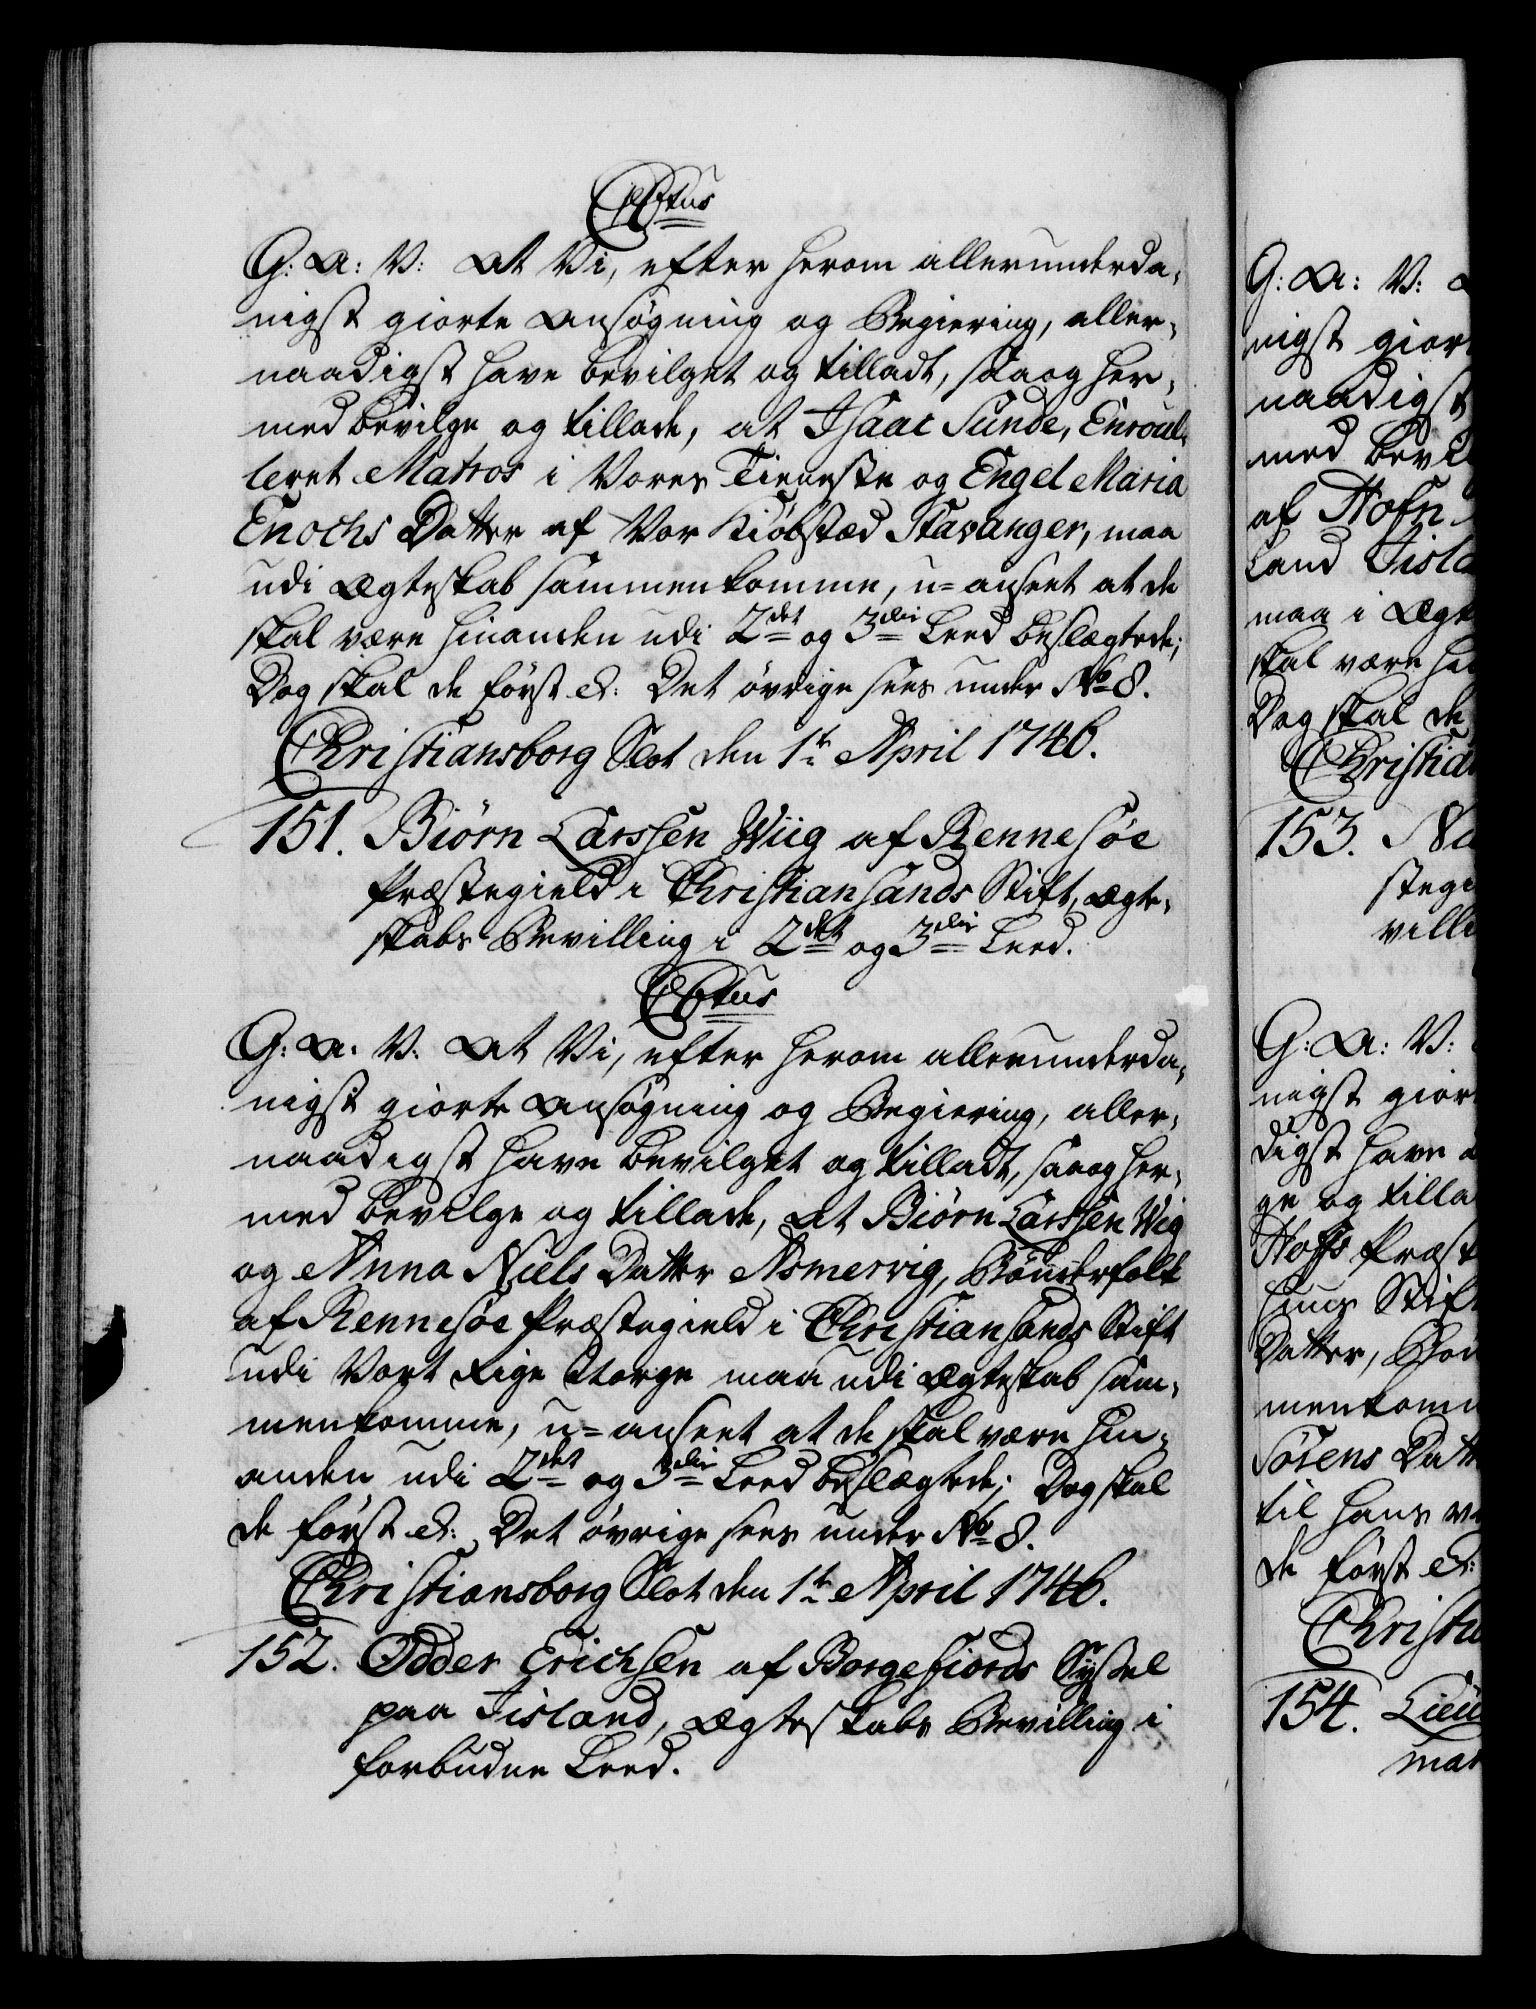 CStus
G: A: V: At Vi, efter herom allerunderda-
nigst giorte Ansøgning og Begiering, aller-
naadigst have bevilget og tilladt, saa og her-
med bevilge og tillade, at Isaac Sunde, Enroul-
leret Matros i Vores Tieneste og Engel Maria
Enochs Datter af Vor Kiøbstæd Stavanger, maa
udi Ægteskab sammenkomme, u-anseet at de
skal være hinanden udi 2det og 3die Leed beslægtede;
Dog skal de først &: Det øvrige sees under No 8.
Christiansborg Slot den 1te April 1746.
151. Biørn Larssen Wiig af Rennesøe
Præstegield i Christiansands Stift, Ægte-
skabs Bevilling i 2det og 3die Leed.
CStus
G: A: V: At Vi, efter herom allerunderda-
nigst giorte Ansøgning og Begiering, aller-
naadigst have bevilget og tilladt, saa og her-
med bevilge og tillade, at Biørn Larssen Wig
og Anna Niels Datter Asmervig, Bønderfolk
af Rennesøe Præstegield i Christiansands Stift
udi Vort Rige Norge maa udi Ægteskab sam-
menkomme, u-anseet at de skal være hin-
anden udi 2det og 3die Leed beslægtede; Dog skal
de først &: Det øvrige sees under No 8.
Christiansborg Slot den 1te April 1746.
152. Odder Erichsen af Borgefiords Syssel
paa Iisland, Ægteskabs Bevilling i
forbudne Leed.
G: A: V:
nigst giort
naadigst
med bevil
af Hofn
land Iisla
maa i Ægt
skal være hi
Dog skal de
Christia
153. Na
stegi
villi
G: A: V:
nigst gior
digst have
ge og tilla
Hoffs Præst
huus Stift
Datter, Bøn
menkom
Sørens Datt
til hans
de først &:
Christi
154. Lieu
mar